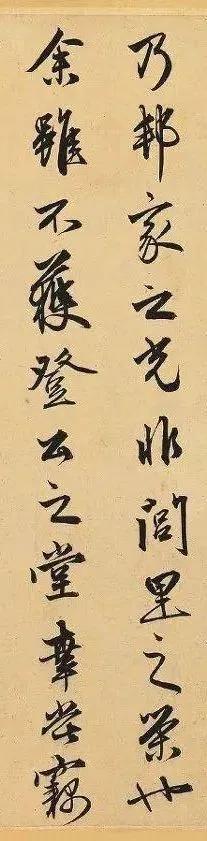 乃邦家之光非閭里之榮也
余雖不獲登公之堂幸嘗竊